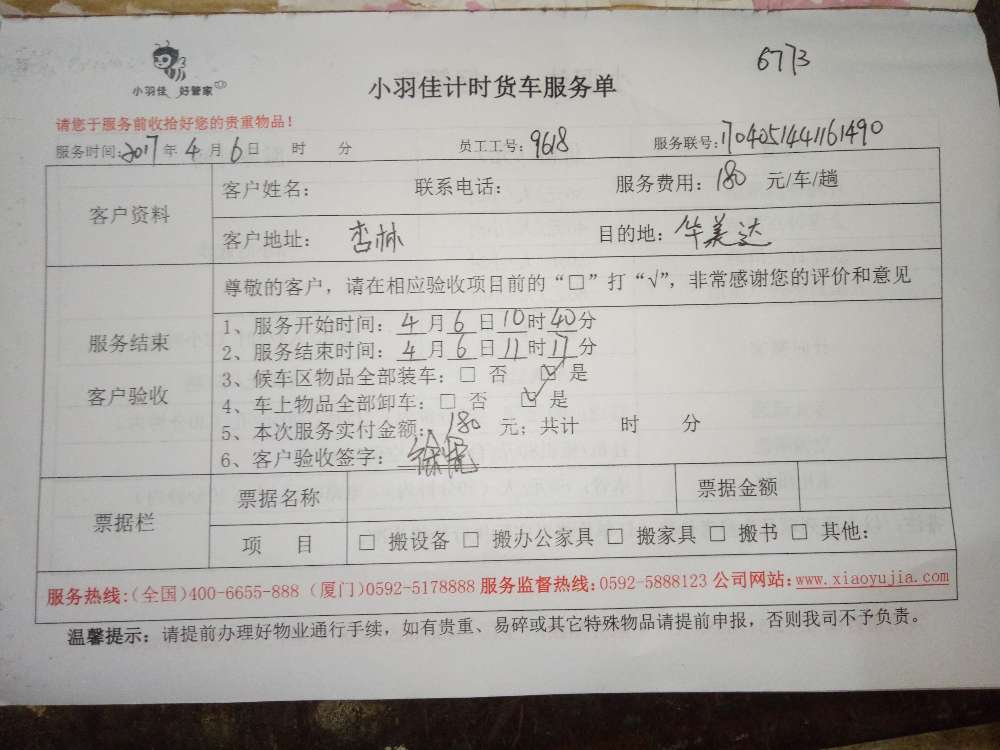 6773
小羽佳 好管家
小羽佳计时货车服务单
请您于服务前收拾好您的贵重物品！
服务时间：2017年4月6日 时 分 员工工号：9618 服务联号：1704051441161490
客户资料
客户姓名： 联系电话： 服务费用：180 元/车/趟
客户地址： 杏林 目的地：华美达
服务结束
客户验收
尊敬的客户，请在相应验收项目前的“□”打“√”，非常感谢您的评价和意见
1、服务开始时间：4月6日10时40分
2、服务结束时间：4月6日11时17分
3、候车区物品全部装车：□ 否 ☑ 是
4、车上物品全部卸车：□ 否 ☑ 是
5、本次服务实付金额：180 元；共计 时 分
6、客户验收签字：徐
票据栏
票据名称 票据金额
项 目 □ 搬设备 □ 搬办公家具 □ 搬家具 □ 搬书 □ 其他：
服务热线：(全国)400-6655-888 (厦门)0592-5178888 服务监督热线：0592-5888123 公司网站：www.xiaoyujia.com
温馨提示：请提前办理好物业通行手续，如有贵重、易碎或其它特殊物品请提前申报，否则我司不予负责。